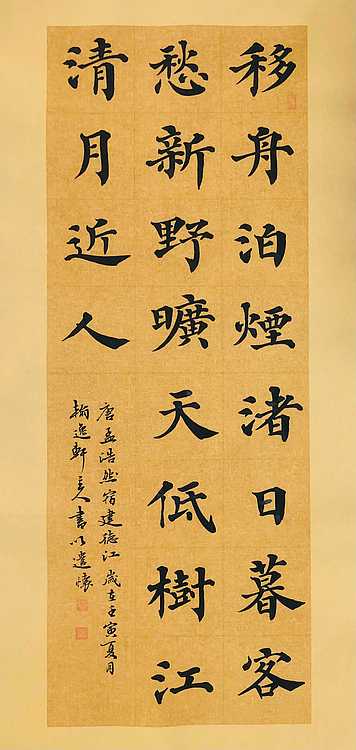 移舟泊煙渚日暮客
愁新野曠天低樹江
清月近人
唐孟浩然宿建德江歲在壬寅夏月
翰逸軒主人書以遣懷